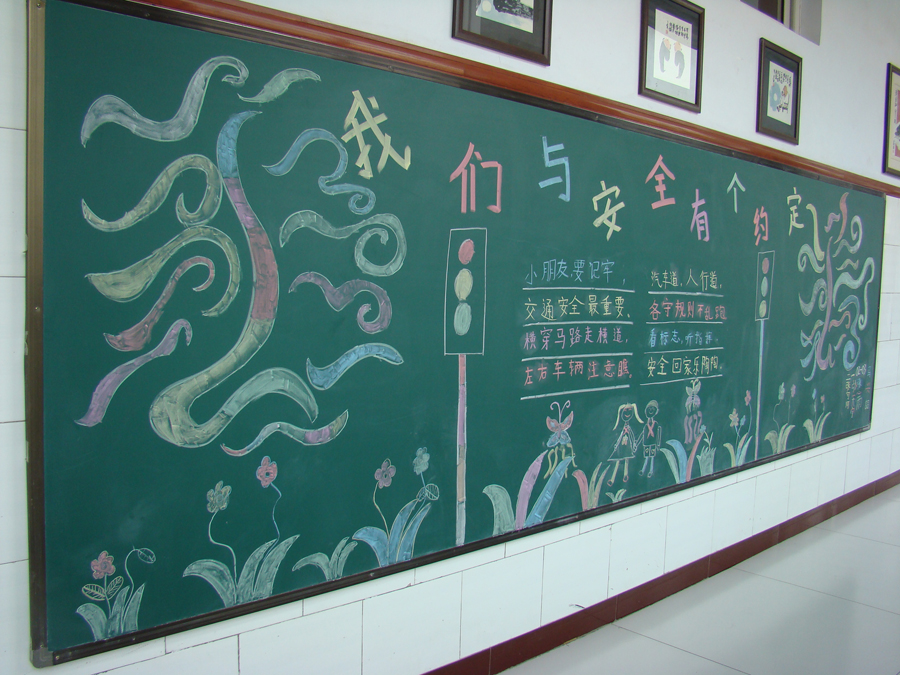 我们与安全有个约定
小朋友要记牢，
交通安全最重要，
横穿马路走横道，
左右车辆注意瞧。
汽车道，人行道，
各守规则不乱跑
看标志，听指挥，
安全回家乐陶陶。